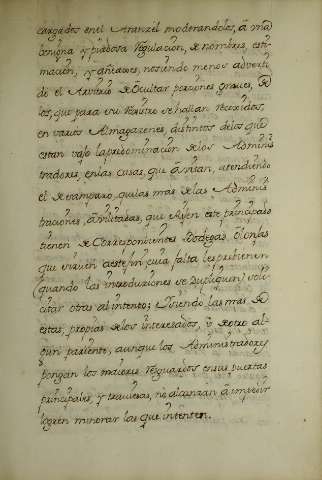 cargados en el Aranzel moderandolos, â mâ
benigna y piadosa Regulacion, de nombres, esti
macion, y aneares, no siendo menos adverti
do el Arvitrio de Ocultar porciones graves, de
los, que para su Rexistro se hallan recevidos
en varios Almagazenes, distintos de los que
estan vajo la predominacion de los Adminis
tradores, en las casas, que avitan, atendiendo
el desamparo, que las mas de las Adminis
traciones, avilitadas, que Rijen este principado
tienen de Correspondientes Bodegas, ô lonjas
que sirven a este fin cuia falta les previenen
quando las introduziones se duplican, soli
citar otras al intento; Siendo las mas de
estas, propias de los interesados, ô de otro al
gun pariente, aunque los Administradores
pongan los maiores Resguardos en sus puertas
principales, y traviesas, no alcanzan â impedir
logren minorar las que intenten.